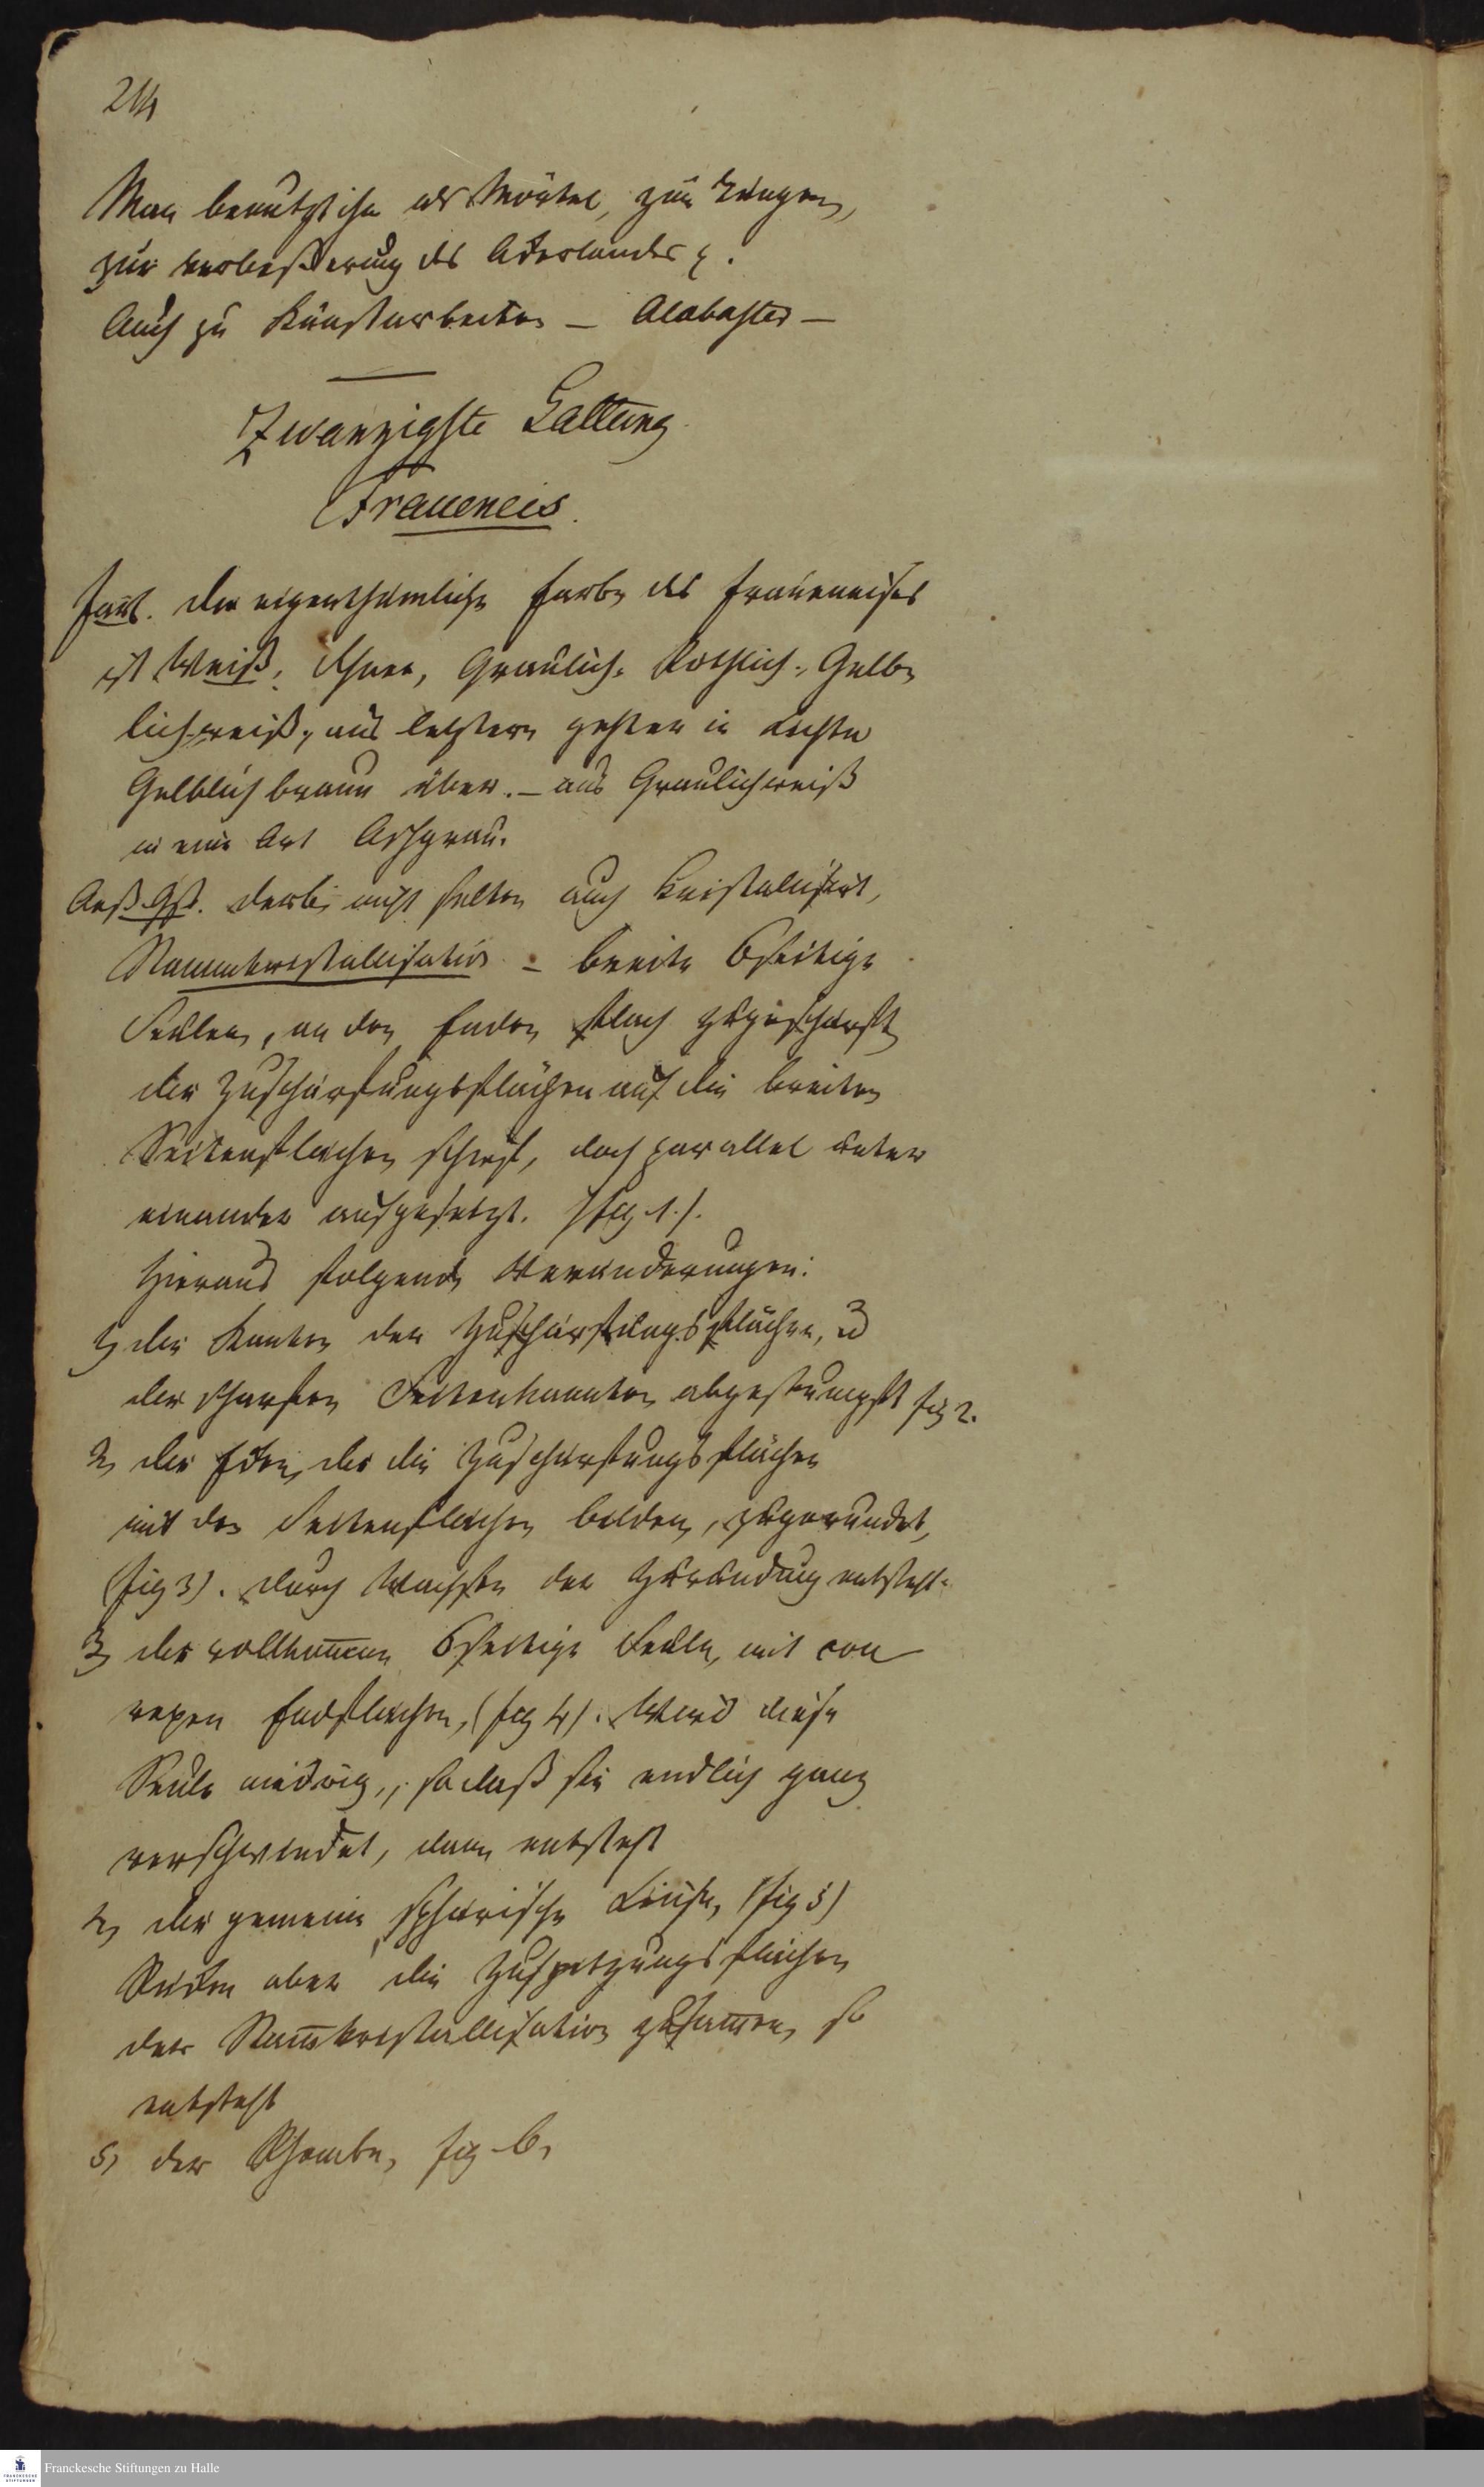 214
Man benutzt ihn als Mörtel, zum Düngen,
zur verbeßerung des Akerlandes ꝛ.
Auch zu Kunstarbeiten – Alabaster –
Zwanzigste Gattung
Fraueneis.
Farb. Die eigenthümliche Farbe des Fraueneises
ist Weiß; Schnee, Graulich- Rothlich- Gelb-
lichweiß; aus letztern gehter in lichte
Gelblichbraun über. – aus Graulichweiß
in eine Art Aschgrau.
Aeß. Gst. Derb; nicht selten auch kristallisirt,
Stammkristallisation – breite 6seitige
Seulen, an den Enden flach zugeschärft
die Zuschärfungsflächen auf die breiten
Seitenflachen schief, doch parallel unter
einander aufgesetzt. (fig. 1.).
Hieraus folgende Veranderungen:
1, die Kanten der Zuschärfungsflächen, ud
der scharfen Seitenkannten abgestumpft fig 2.
2, die Eken, die die Zuschärfungsflächen
mit den Seitenflachen bilden, zugerundet,
(fig 3). Durch Wachsen der Zurundung entsteht:
3, die vollkom̅en 6seitige Seule, mit con
vexen Endflachen, (fig 4). Wird diese
Seule niedrig, so daß sie endlich ganz
verschwindet, dann entsteht
4, die gemeine sphärische Linse, (fig 5)
Rüken aber die Zuspitzungsflachen
der Stam̅kristallisation zusam̅en, so
entsteht
5, der Rhombe, fig. 6,
Franckesche Stiftungen zu Halle